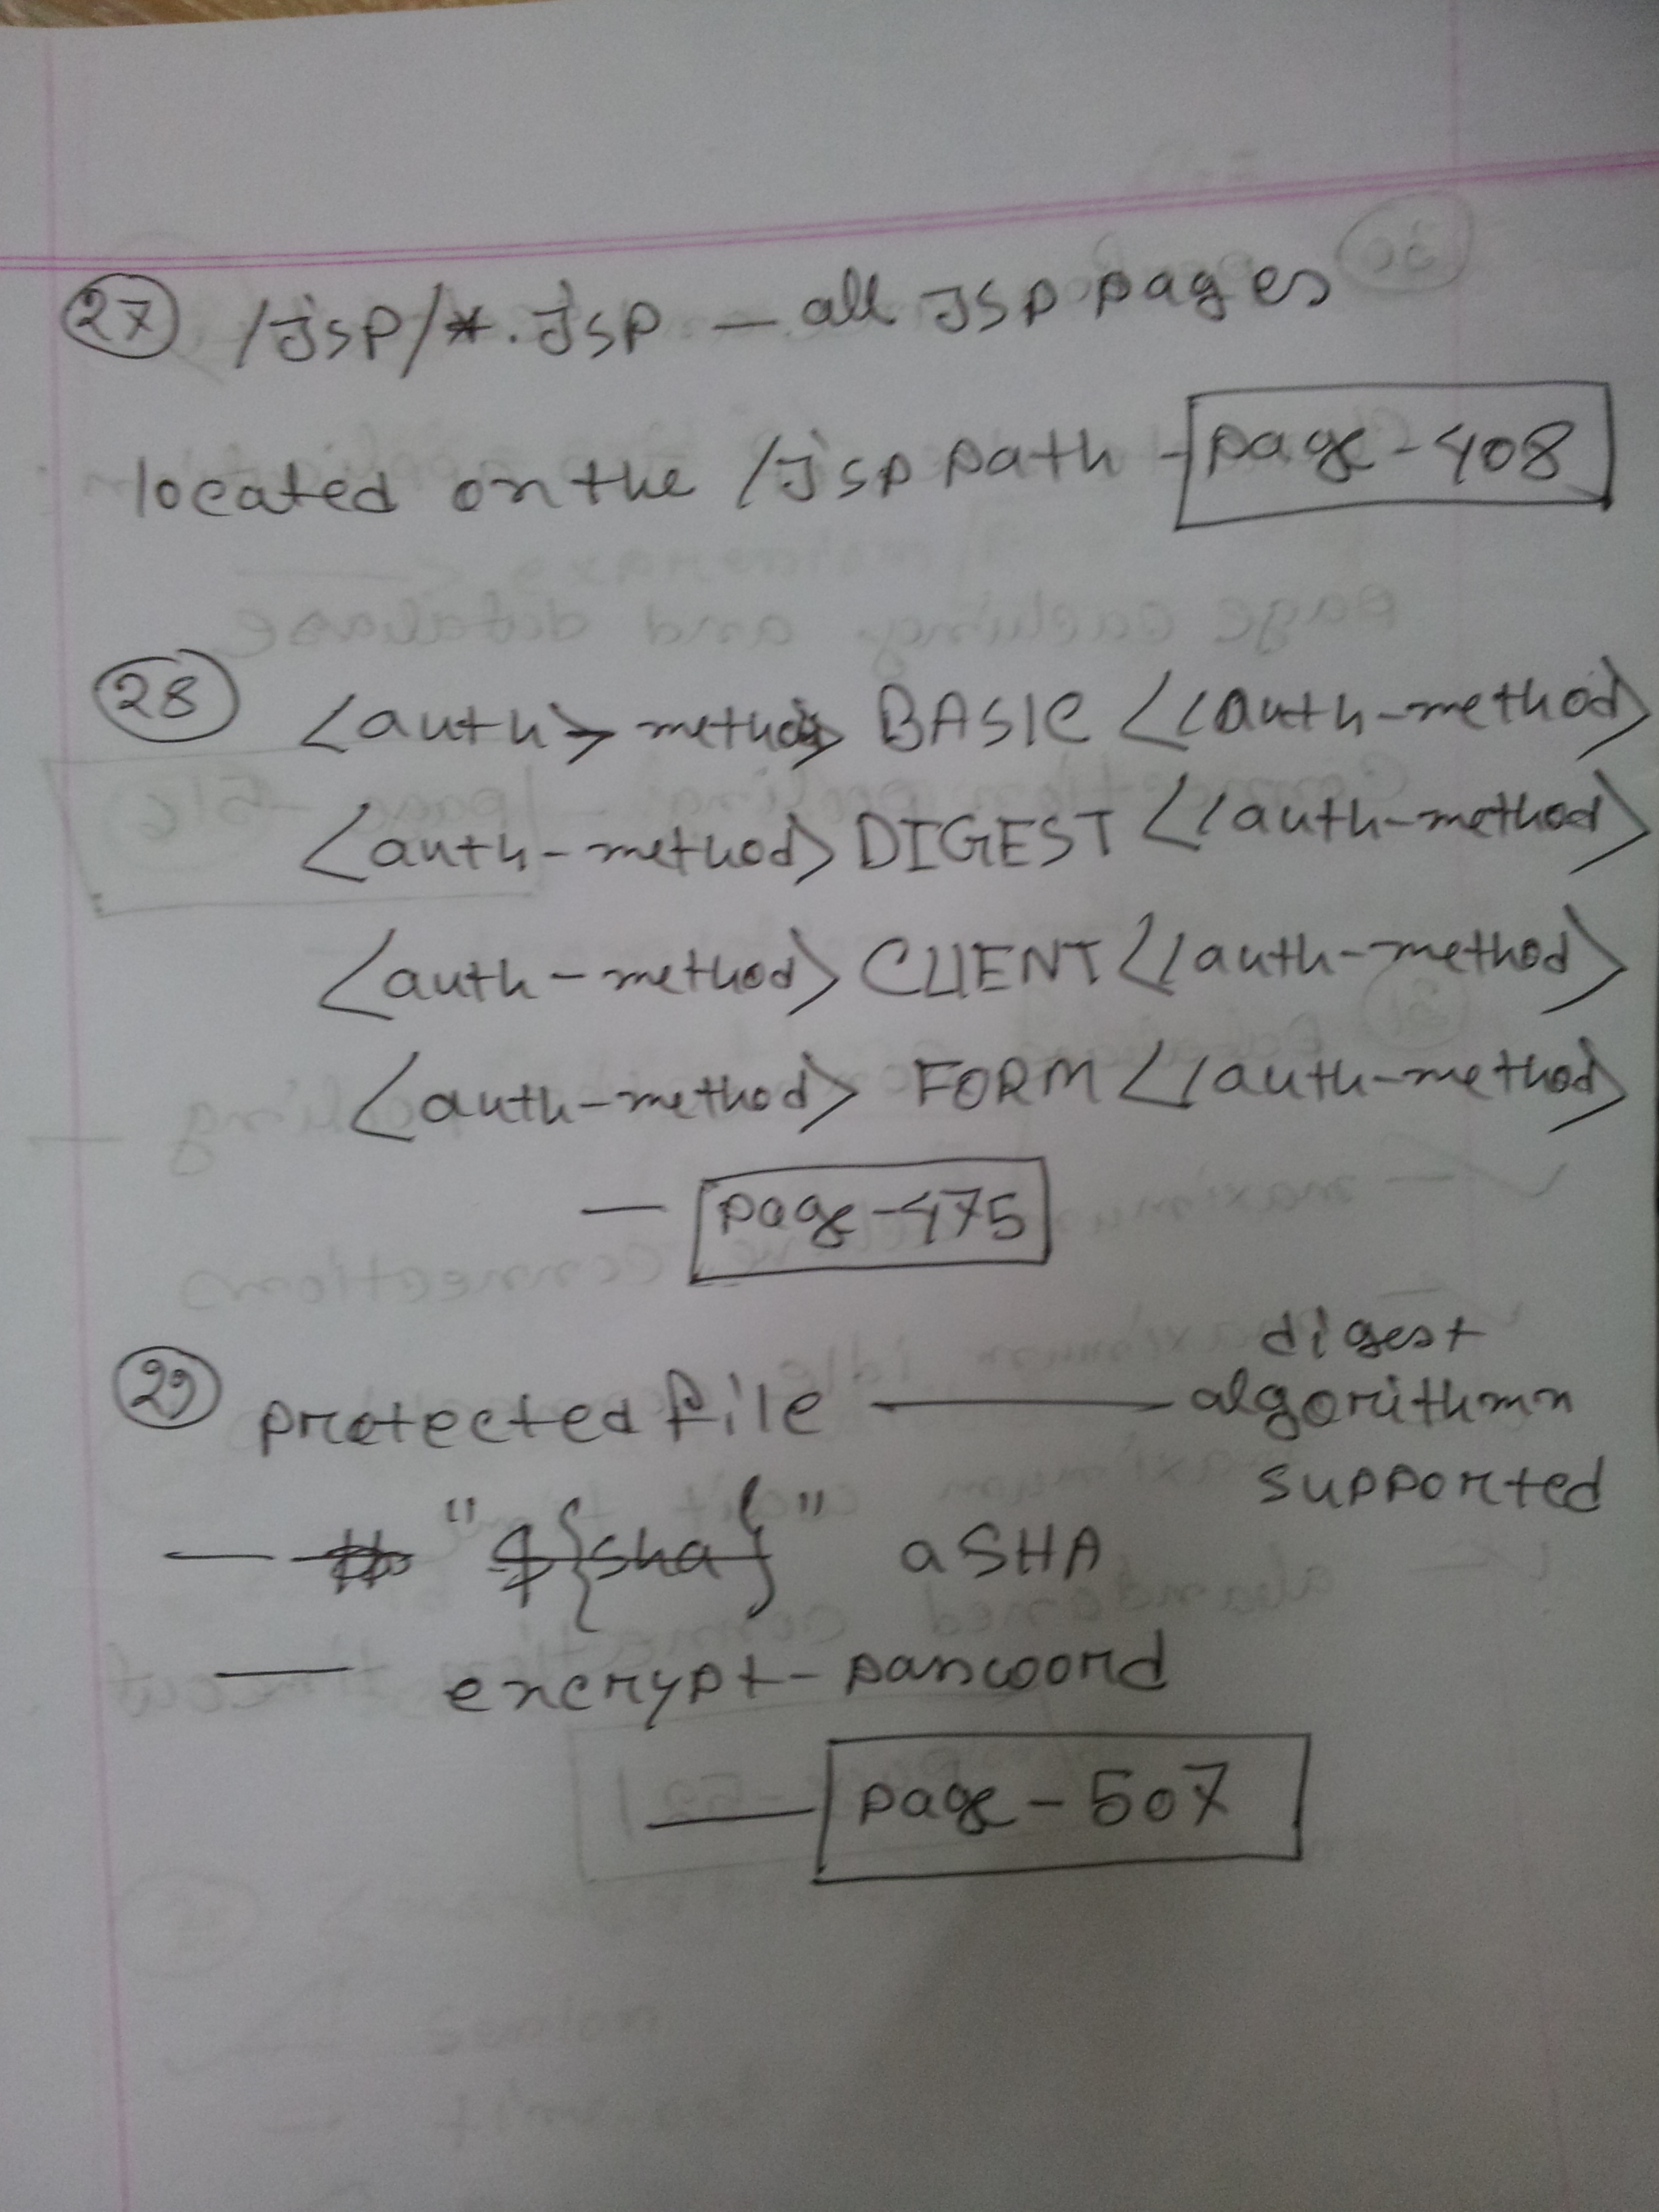 27 /Jsp/*.Jsp — all JSP pages
located on the /Jsp path - page-408
28 <auth> method> BASIC </auth-method>
<auth-method> DIGEST </auth-method>
<auth-method> CLIENT </auth-method>
<auth-method> FORM </auth-method>
— page-475
digest
29 protected file — algorithmn
supported
— "${sha}" a SHA
— encrypt-password
— page-507